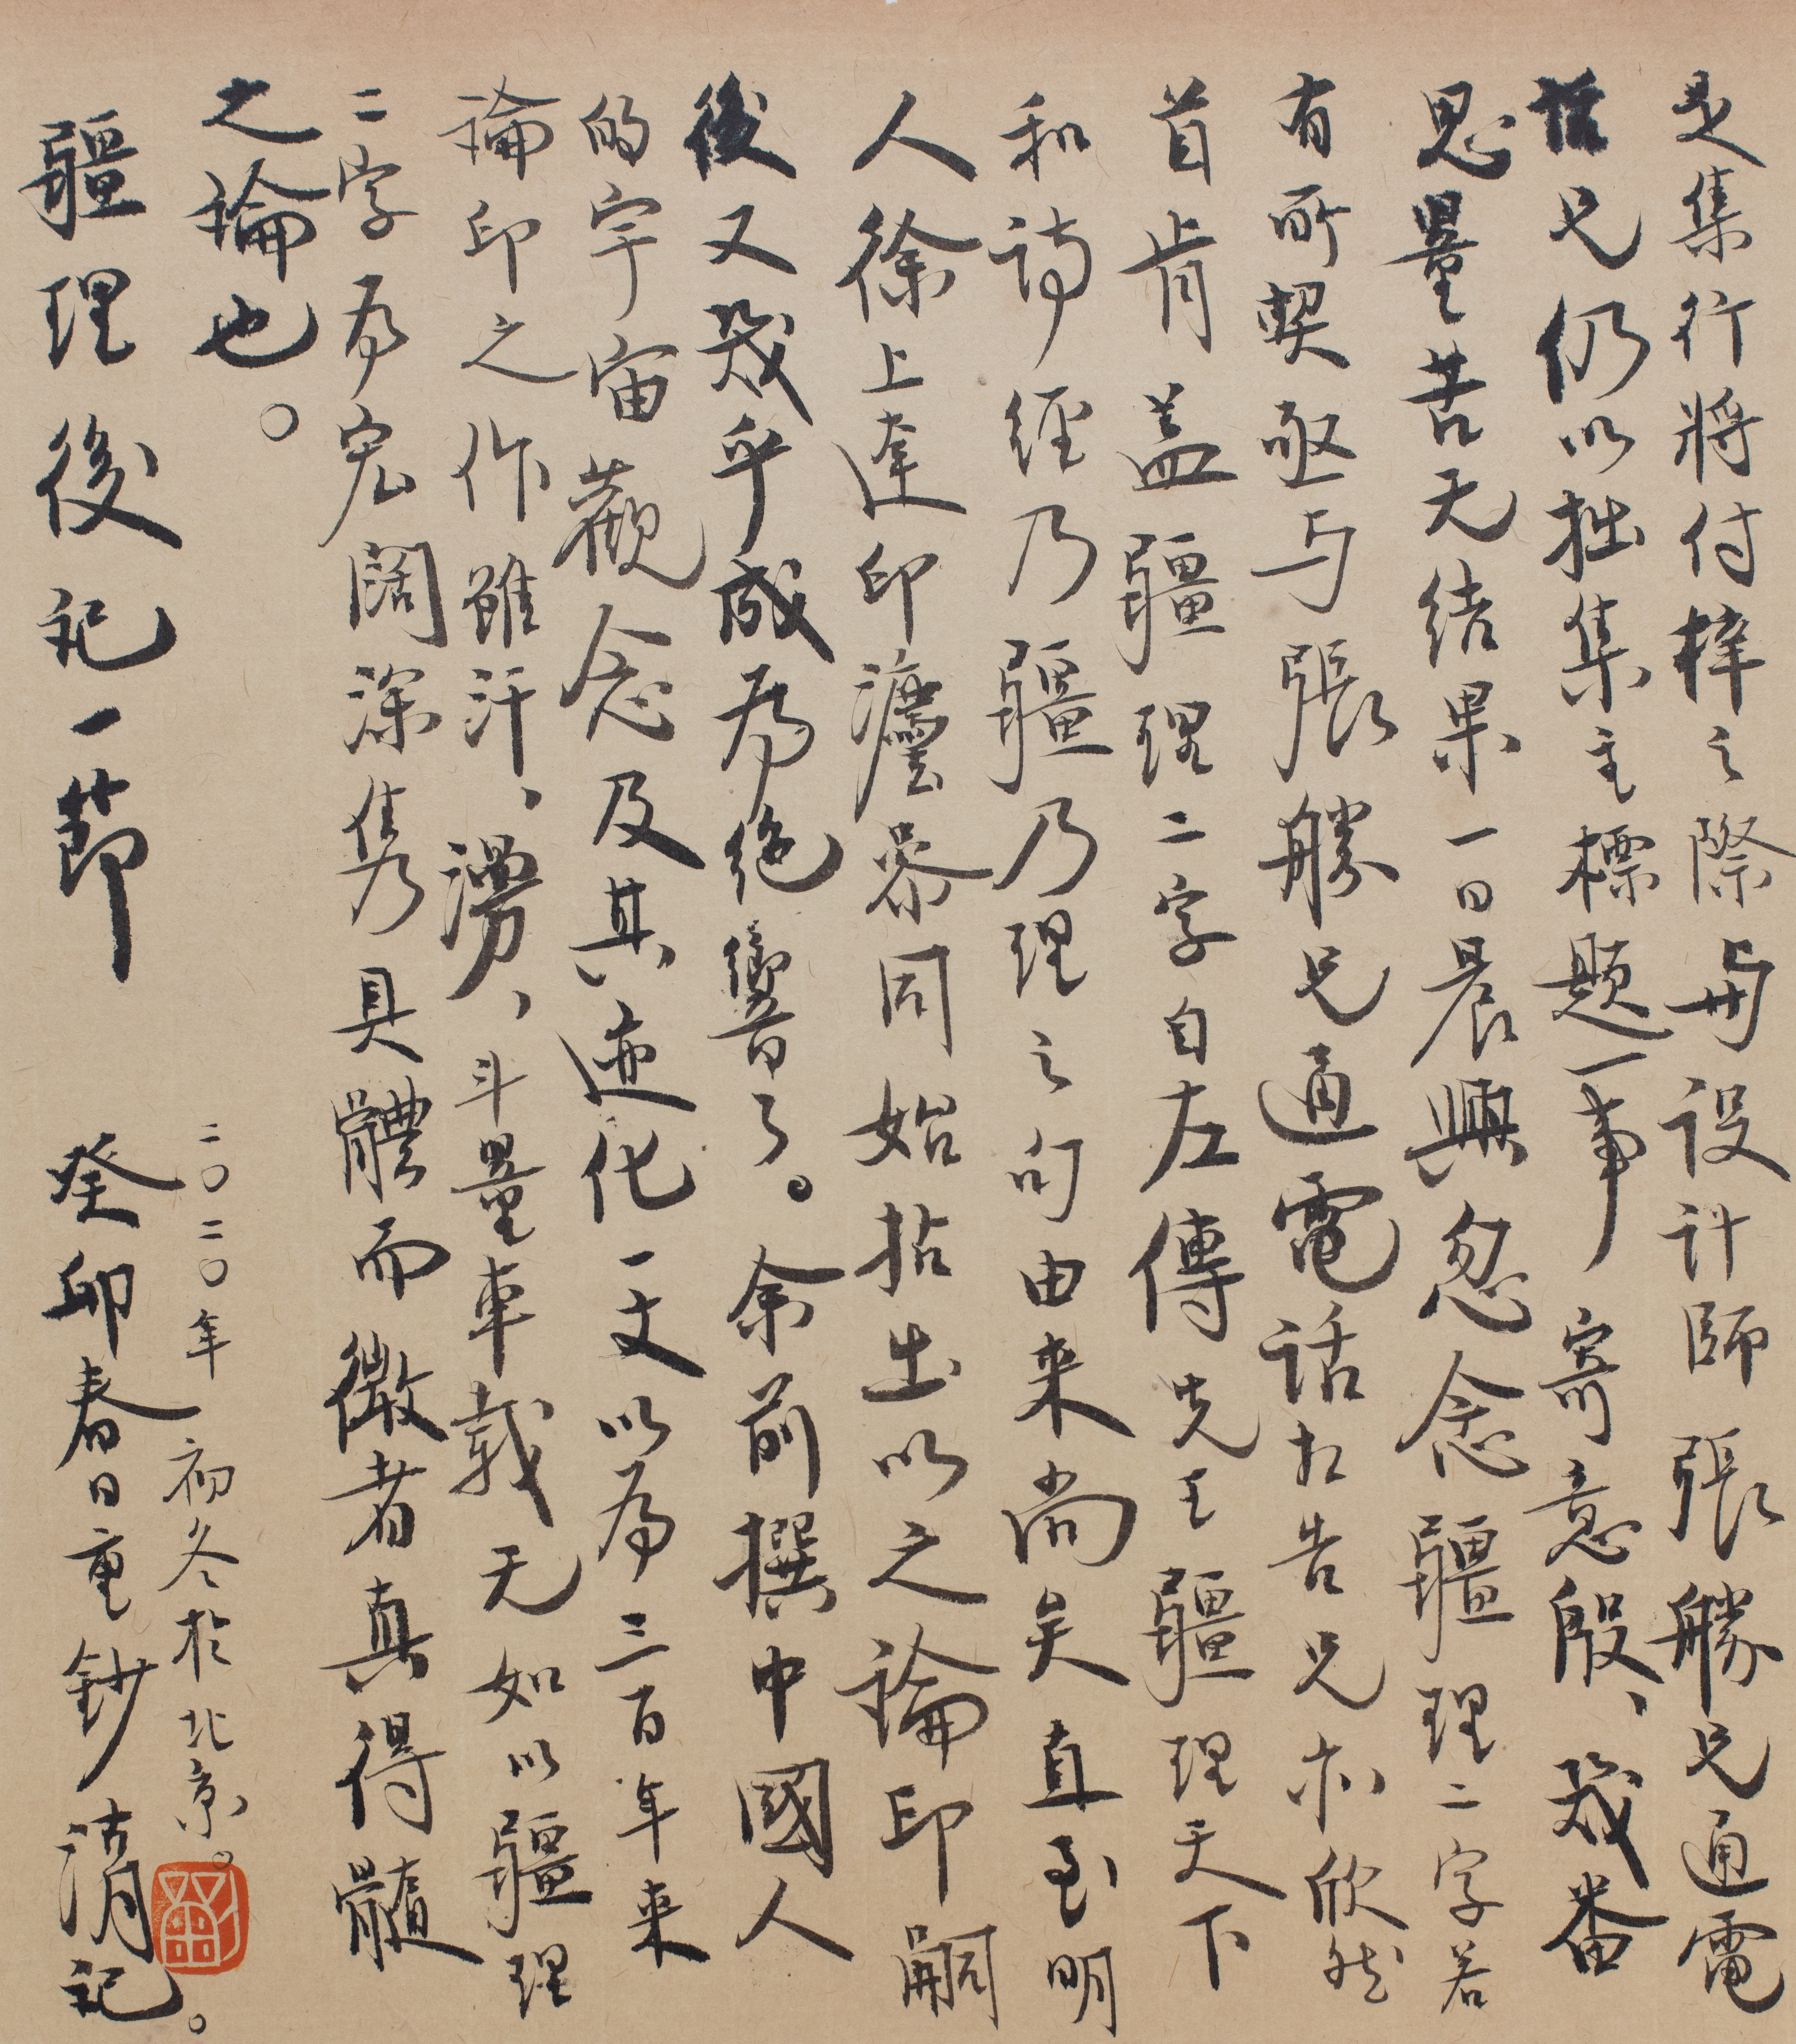 是集行將付梓之際與设计師張勝兄通電
话兄仍以拙集主標題一事寄意殷、幾番
思量苦无结果一日晨興忽念疆理二字若
有所契亟与張勝兄通電话相告兄亦欣然
首肯盖疆理二字自左傳先王疆理天下
和詩經乃疆乃理之句由来尚矣直至明
人徐上達印法参同始拈出以之論印嗣
後又幾乎成為絶響了。余前撰中國人
的宇宙觀念及其迹化一文以為三百年来
論印之作雖汗、漫、斗量車載无如以疆理
二字為宏闊深隽具體而微者真得髓
之論也。
二〇二〇年初冬於北京。
疆理後記一節
癸卯春日重鈔清記。